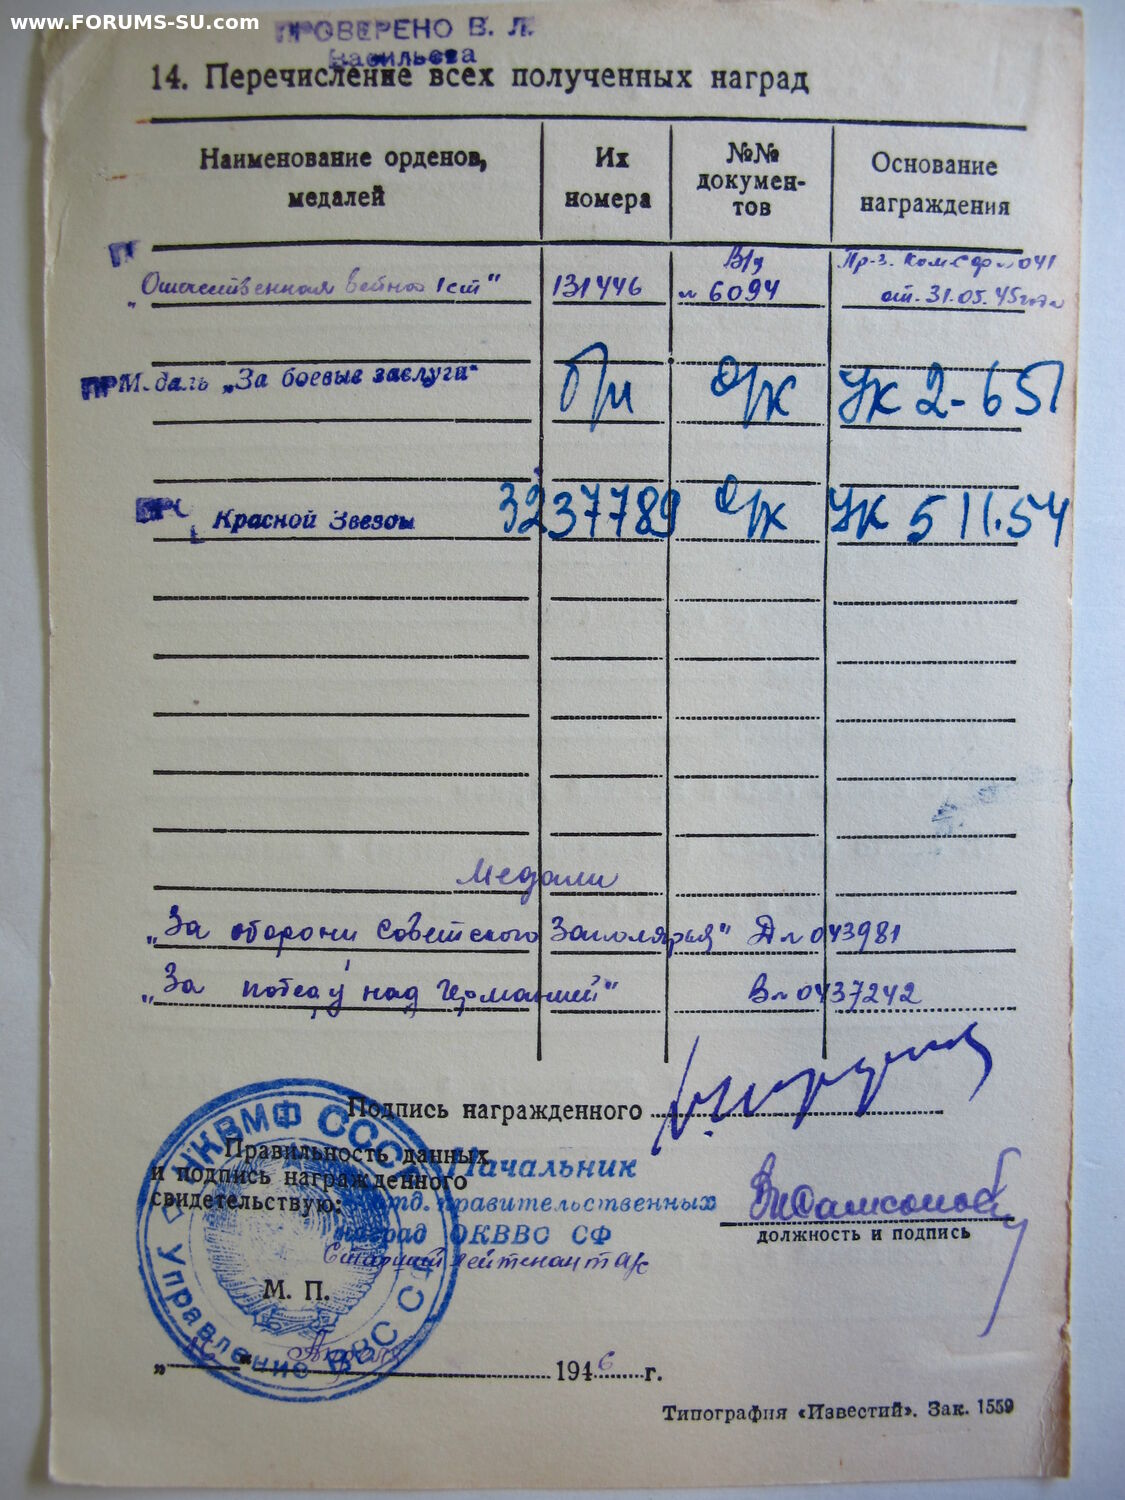 www.FORUMS-SU.com
ПРОВЕРЕНО В. Л.
Васильева
14. Перечисление всех полученных наград
Наименование орденов, медалей
Их номера
№№ докумен-тов
Основание награждения
„Отечественная война 1 ст"
131446
В/д № 6094
Пр-з. Ком. СФ № 041 от 31.05.45 года
Медаль „За боевые заслуги"
о/к
УК 2-65
Красной Звезды
3237789
о/к
УК 5 11.54
Медали
„За оборону Советского Заполярья" Д № 043981
„За победу над Германией" В № 0437242
Подпись награжденного
Правильность данных
и подпись награжденного
свидетельствую:
Начальник
отд. правительственных
наград ОКВВС СФ
Старший лейтенант а/с
должность и подпись
М. П.
НКВМФ СССР
Управление ВВС СФ
„ " Апреля 1946 г.
Типография «Известий». Зак. 1559